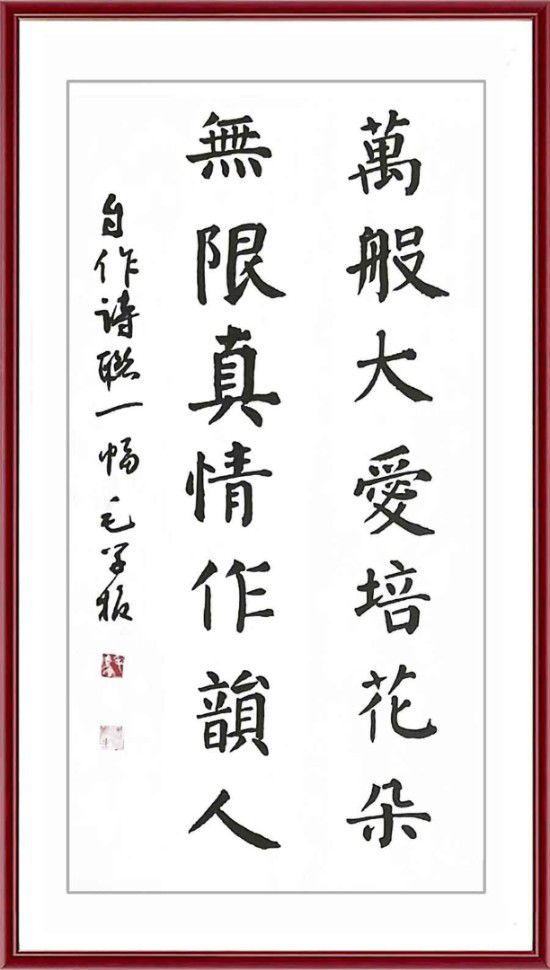 萬般大愛培花朵
無限真情作韻人
自作诗聯一幅毛学振